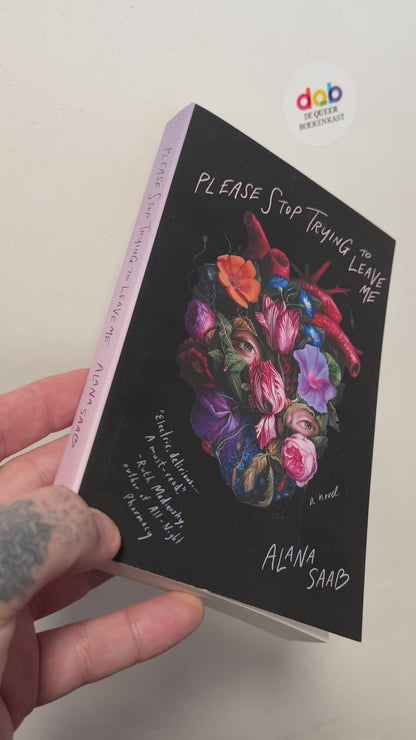 dab
DE QUEER
BOEKENKAST
PLEASE STOP TRYING TO LEAVE ME ALANA SAAB
PLEASE STOP TRYING TO
LEAVE
ME
"Electric, delirious...
A must-read."
-Ruth Madievsky,
author of All-Night
Pharmacy
a novel
ALANA
SAAB